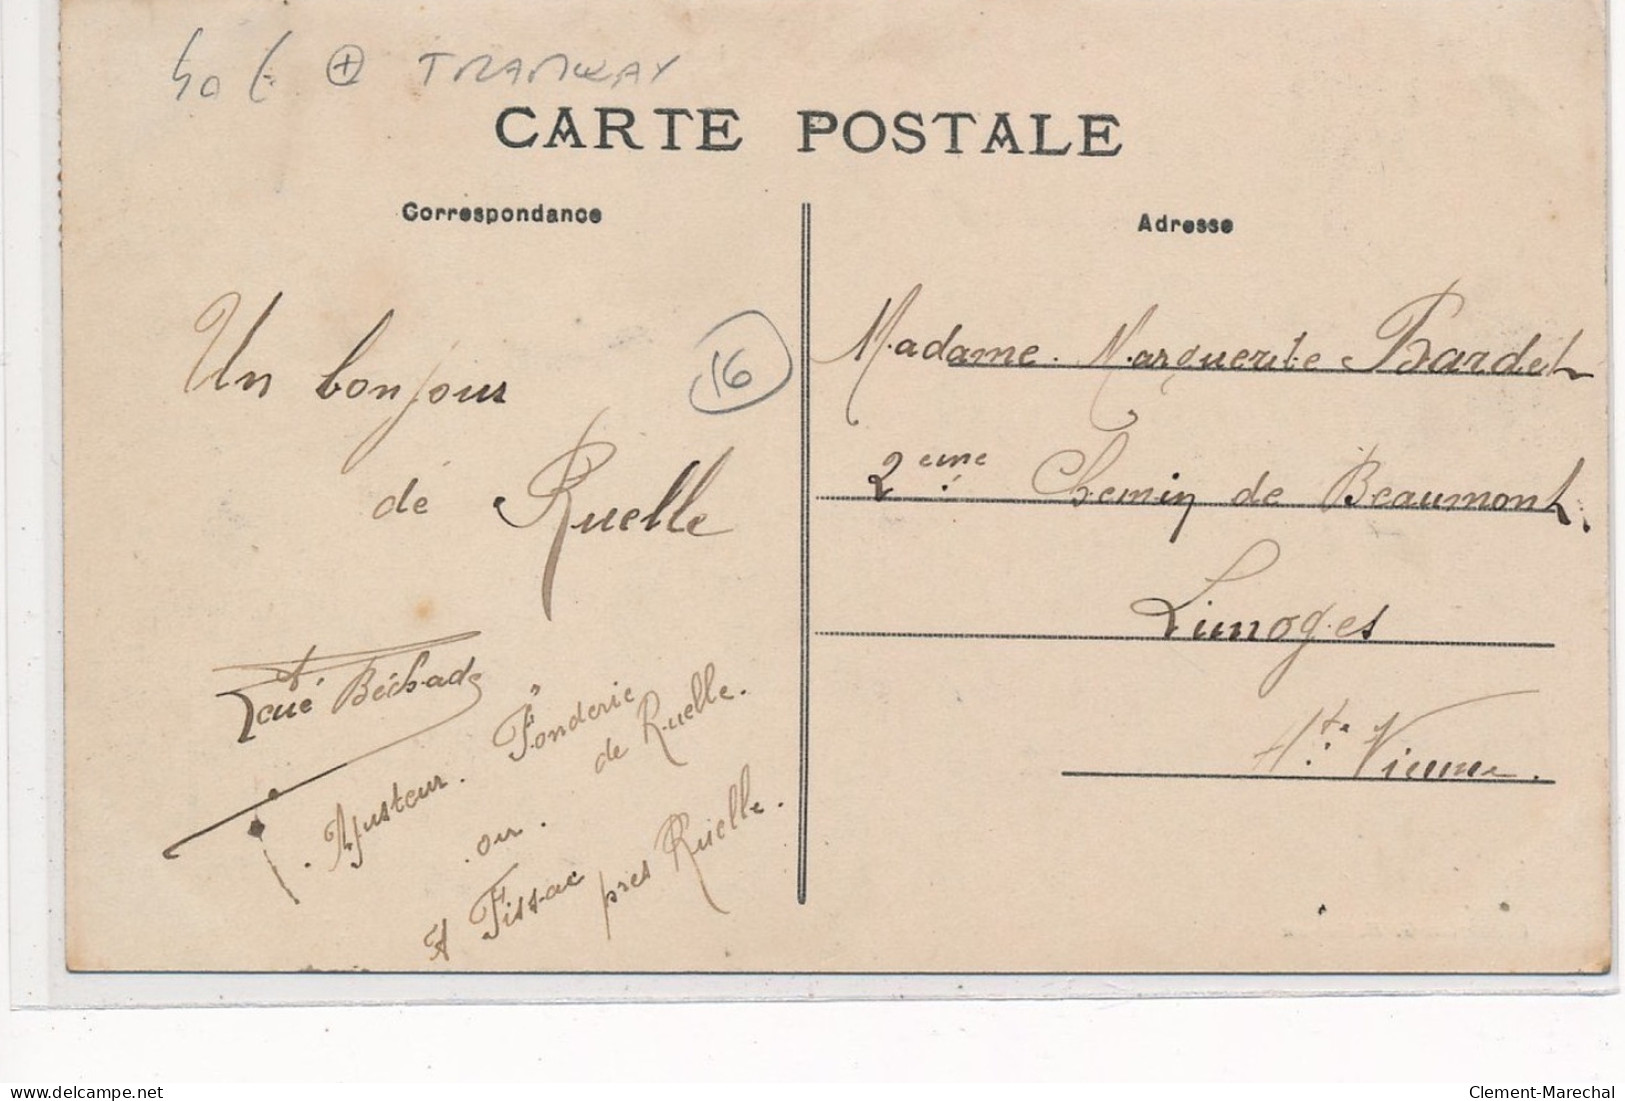 TRAMWAY
CARTE POSTALE
Correspondance
Adresse
Un bonjour
de Ruelle
16
Béchade
Ajusteur. Fonderie
de Ruelle.
ou.
A Fissac
près Ruelle.
Madame. Marguerite Bardet
2eme Chemin de Beaumont.
Limoges
Hte Vienne.
delcampe.net
Clement-Marechal